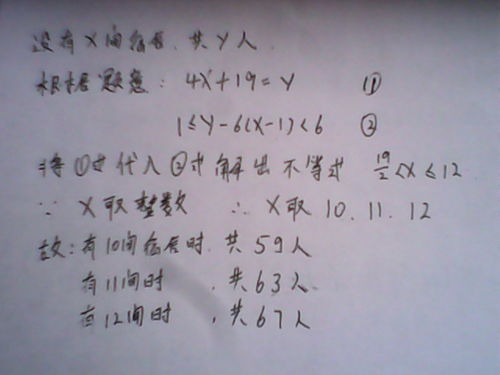 设有X间宿舍.共Y人.
根据题意: 4X+19=Y ①
1≤Y-6(X-1)<6 ②
将①式代入②式解出不等式 19/2<X≤12
∵ X取整数 ∴ X取10.11.12
故:有10间宿舍时.共59人
有11间时 .共63人.
有12间时 .共67人